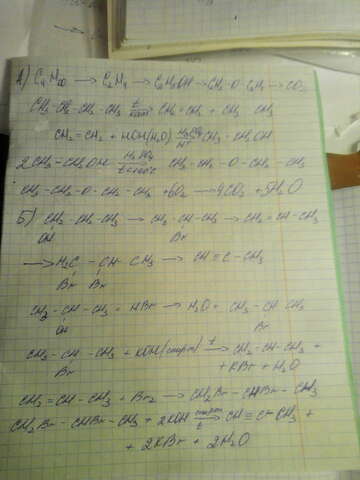 А) C₄H₁₀ → C₂H₄ → C₂H₅OH → C₂H₅-O-C₂H₅ → CO₂
CH₃-CH₂-CH₂-CH₃ t→ CH₂=CH₂ + CH₃ CH₃
CH₂=CH₂ + HOH(H₂O) H₂SO₄→ CH₃-CH₂OH
2CH₃-CH₂OH H₂SO₄→ CH₃-CH₂-O-CH₂-CH₃
CH₃-CH₂-O-CH₂-CH₃ +6O₂ → 4CO₂ +5H₂O
Б) CH₂-CH₂-CH₃ → CH₂-CH-CH₃ → CH₂=CH-CH₃
OH Br
→ H₂C - CH CH₃ → CH≡C-CH₃
Br Br
CH₂-CH-CH₃ + HBr → H₂O + CH₃-CH CH₃
OH Br
CH₃-CH-CH₃ + KOH(спирт) t→ CH₂-CH-CH₃ +
Br + KBr + H₂O
CH₂=CH-CH₃ + Br₂ → CH₂Br-CHBr-CH₃
CH₂Br-CHBr-CH₃ + 2KOH спирт t→ CH≡C-CH₃ +
+ 2KBr + 2H₂O